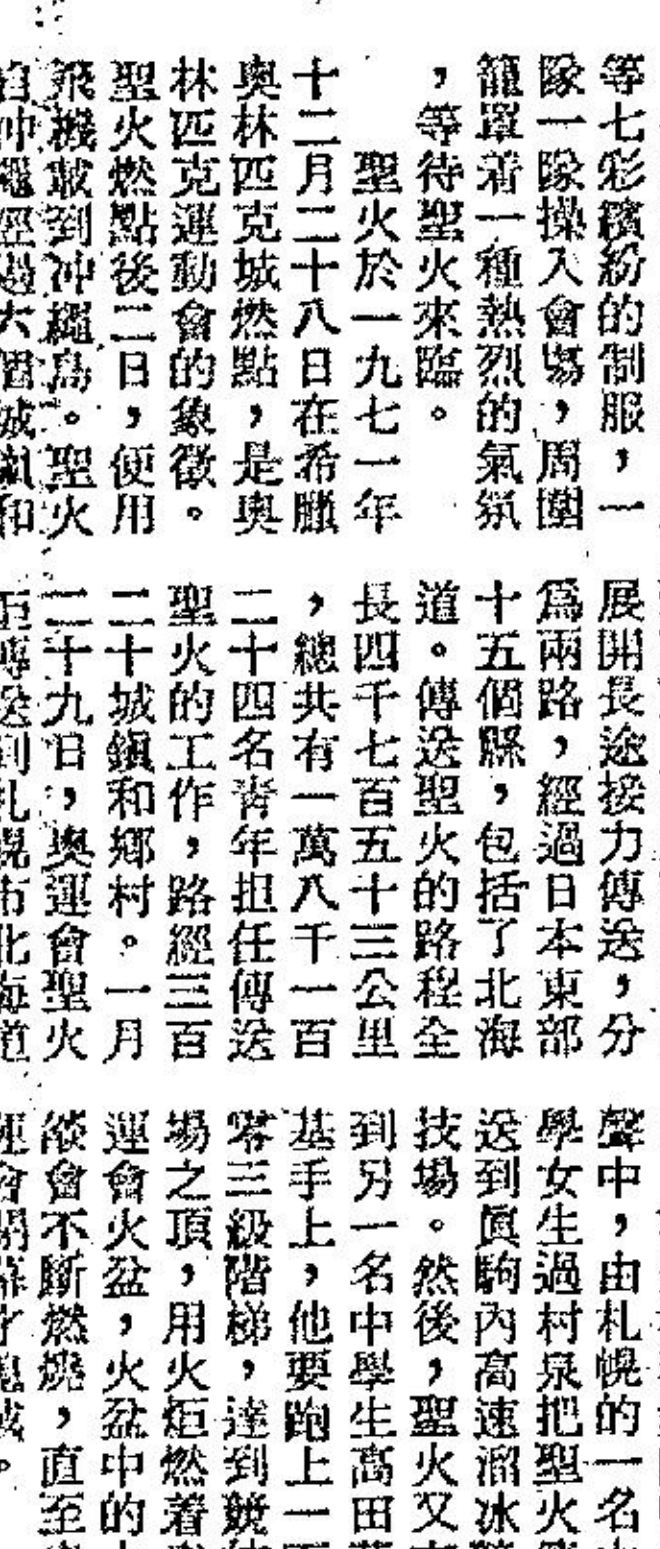 等七彩繽紛的制服，一
隊一隊操入會場，周圍
籠罩着一種熱烈的氣氛
，等待聖火來臨。
聖火於一九七一年
十二月二十八日在希臘
奧林匹克城燃點，是奧
林匹克運動會的象徵。
聖火燃點後二日，便用
飛機載到沖繩島。聖火
自沖繩經過六個城鎮和
展開長途接力傳送，分
爲兩路，經過日本東部
十五個縣，包括了北海
道。傳送聖火的路程全
長四千七百五十三公里
，總共有一萬八千一百
二十四名靑年担任傳送
聖火的工作，路經三百
二十城鎭和鄉村。一月
二十九日，奧運會聖火
傳送到札幌市北海道
聲中，由札幌的一名
學女生過村泉把聖火
送到眞駒內高速溜冰
技場。然後，聖火又
到另一名中學生高田
基手上，他要跑上一
零三級階梯，達到競
場之頂，用火炬燃着
運會火盆，火盆中的
燄會不斷燃燒，直至